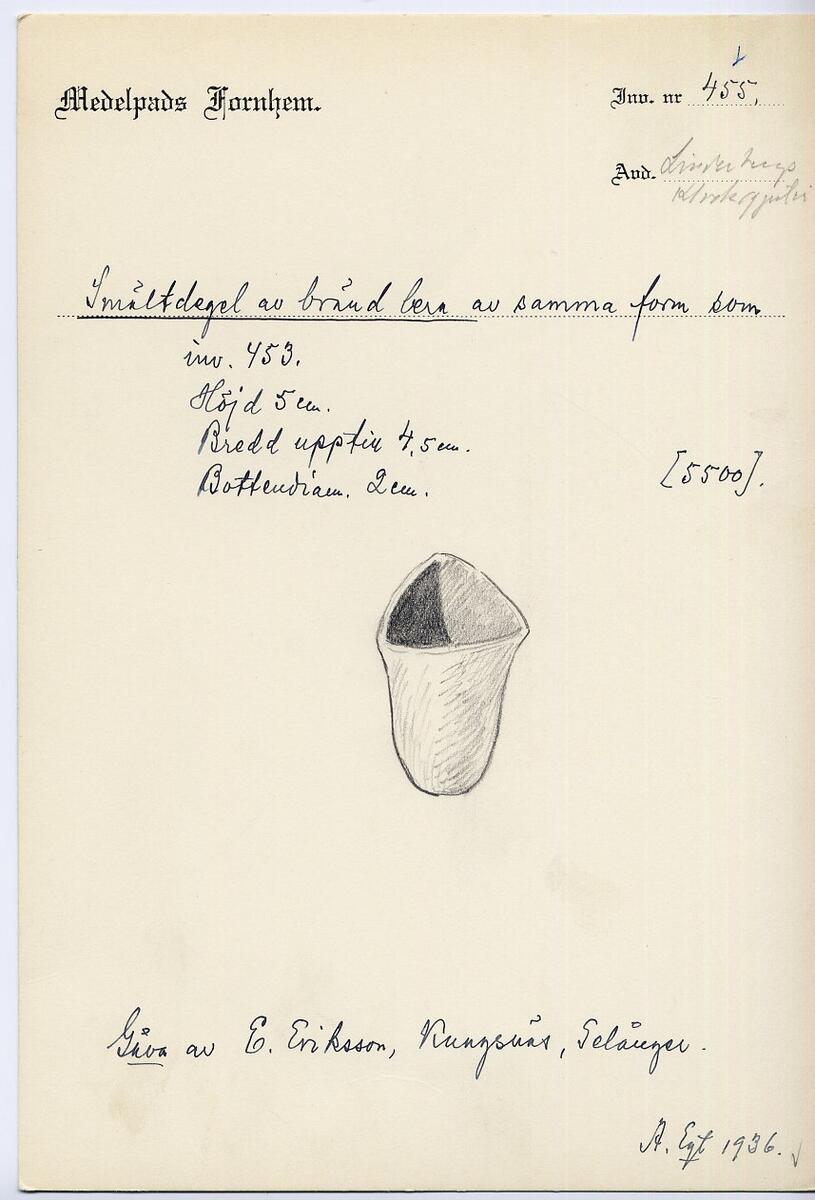 Medelpads Fornhem.
Inv. nr 455.
Avd. Linderbergs
Klockgjuteri
Smältdegel av bränd lera av samma form som
inv. 453.
Höjd 5 cm.
Bredd upptill 4,5 cm.
Bottendiam. 2 cm.
[5500].
Gåva av E. Eriksson, Kungsnäs, Selånger.
A. Egt 1936.